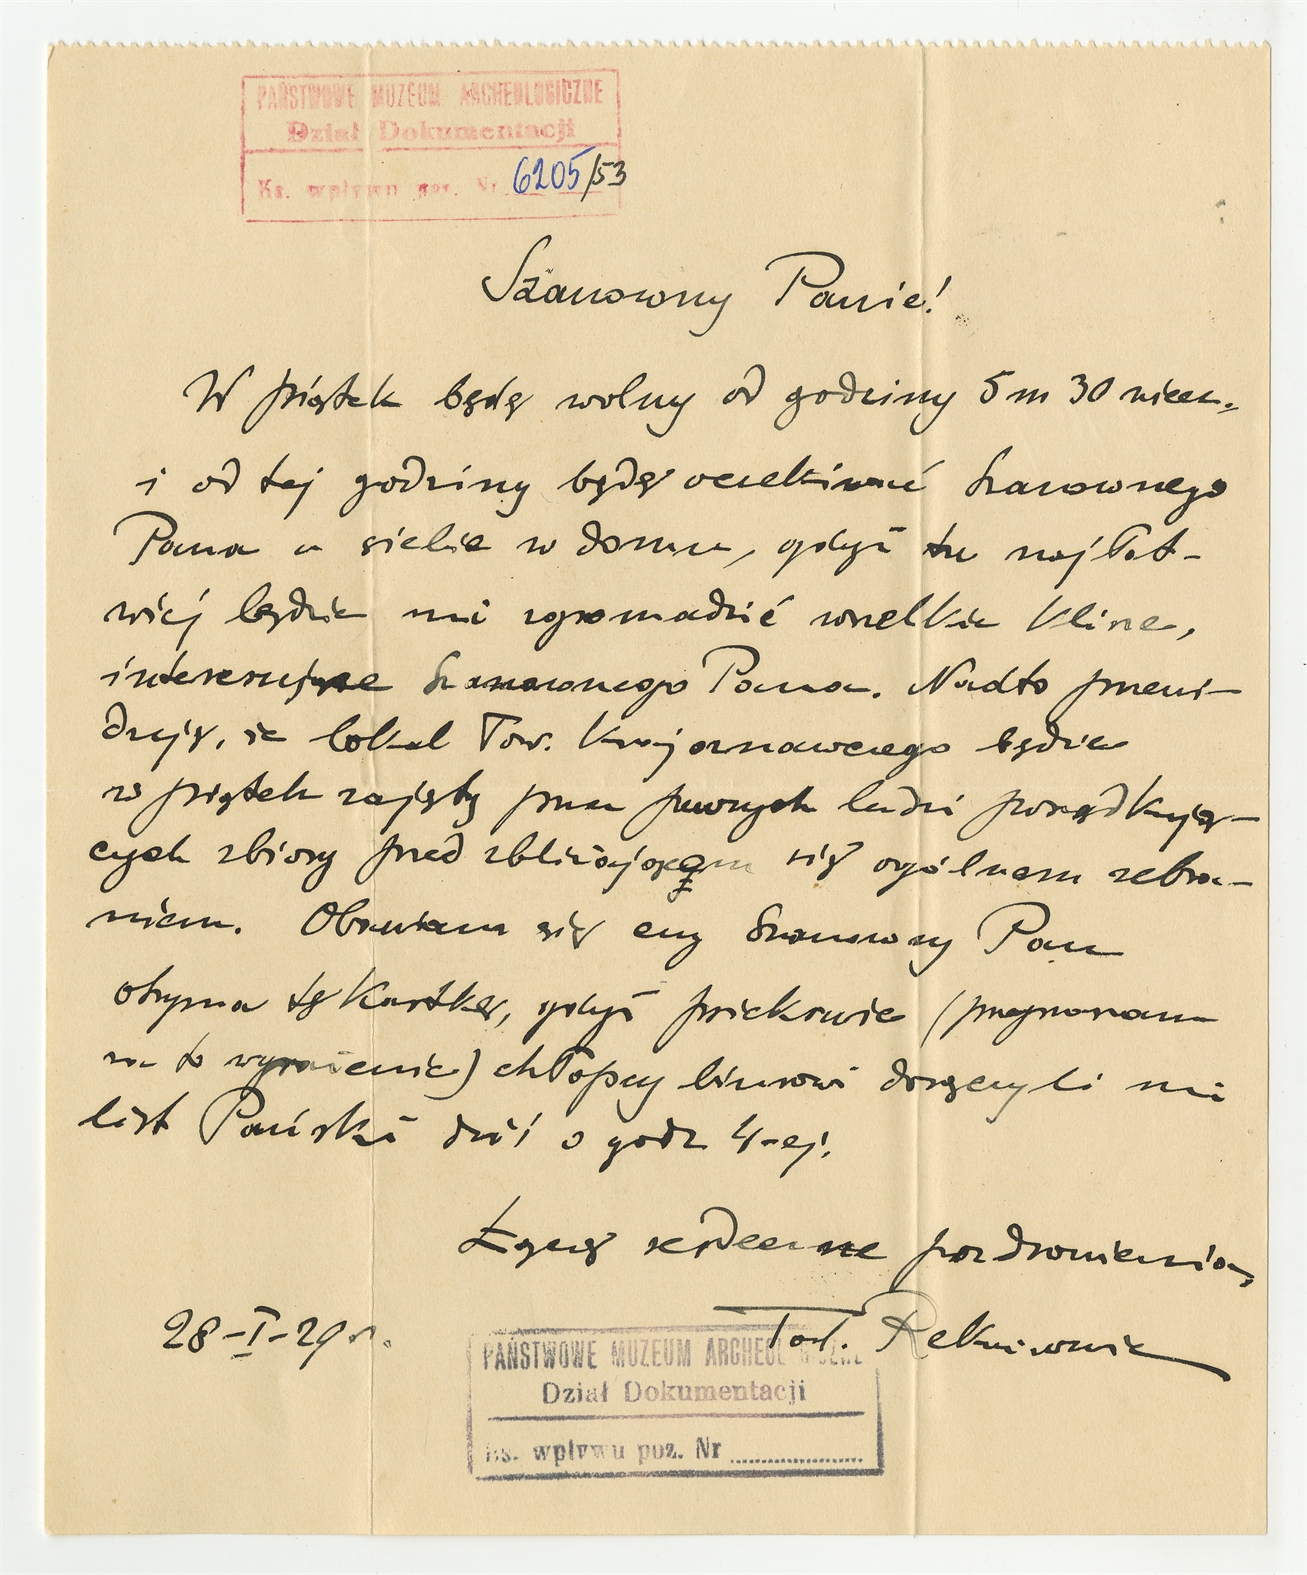 PAŃSTWOWE MUZEUM ARCHEOLOGICZNE
Dział Dokumentacji
Ks. wpływu poz. Nr 6205/53
Szanowny Panie!
W piątek będę wolny od godziny 5 m 30 wiecz.
i od tej godziny będę oczekiwać Szanownego
Pana u siebie w domu, gdyż tu najłat-
wiej będzie mi zgromadzić wszelkie klisze,
interesujące Szanownego Pana. Nadto przewi-
duję, że lokal Tow. Krajoznawczego będzie
w piątek zajęty przez pewnych ludzi porządkują-
cych zbiory przed zbliżającem się ogólnem zebra-
niem. Obawiam się czy Szanowny Pan
otrzyma tę kartkę, gdyż psiekrwie (przepraszam
za to wyrażenie) chłopcy biurowi doręczyli mi
list Pański dziś o godz 4-ej.
Łączę serdeczne pozdrowienia,
28-I-29 r.
PAŃSTWOWE MUZEUM ARCHEOLOGICZNE
Dział Dokumentacji
Ks. wpływu poz. Nr